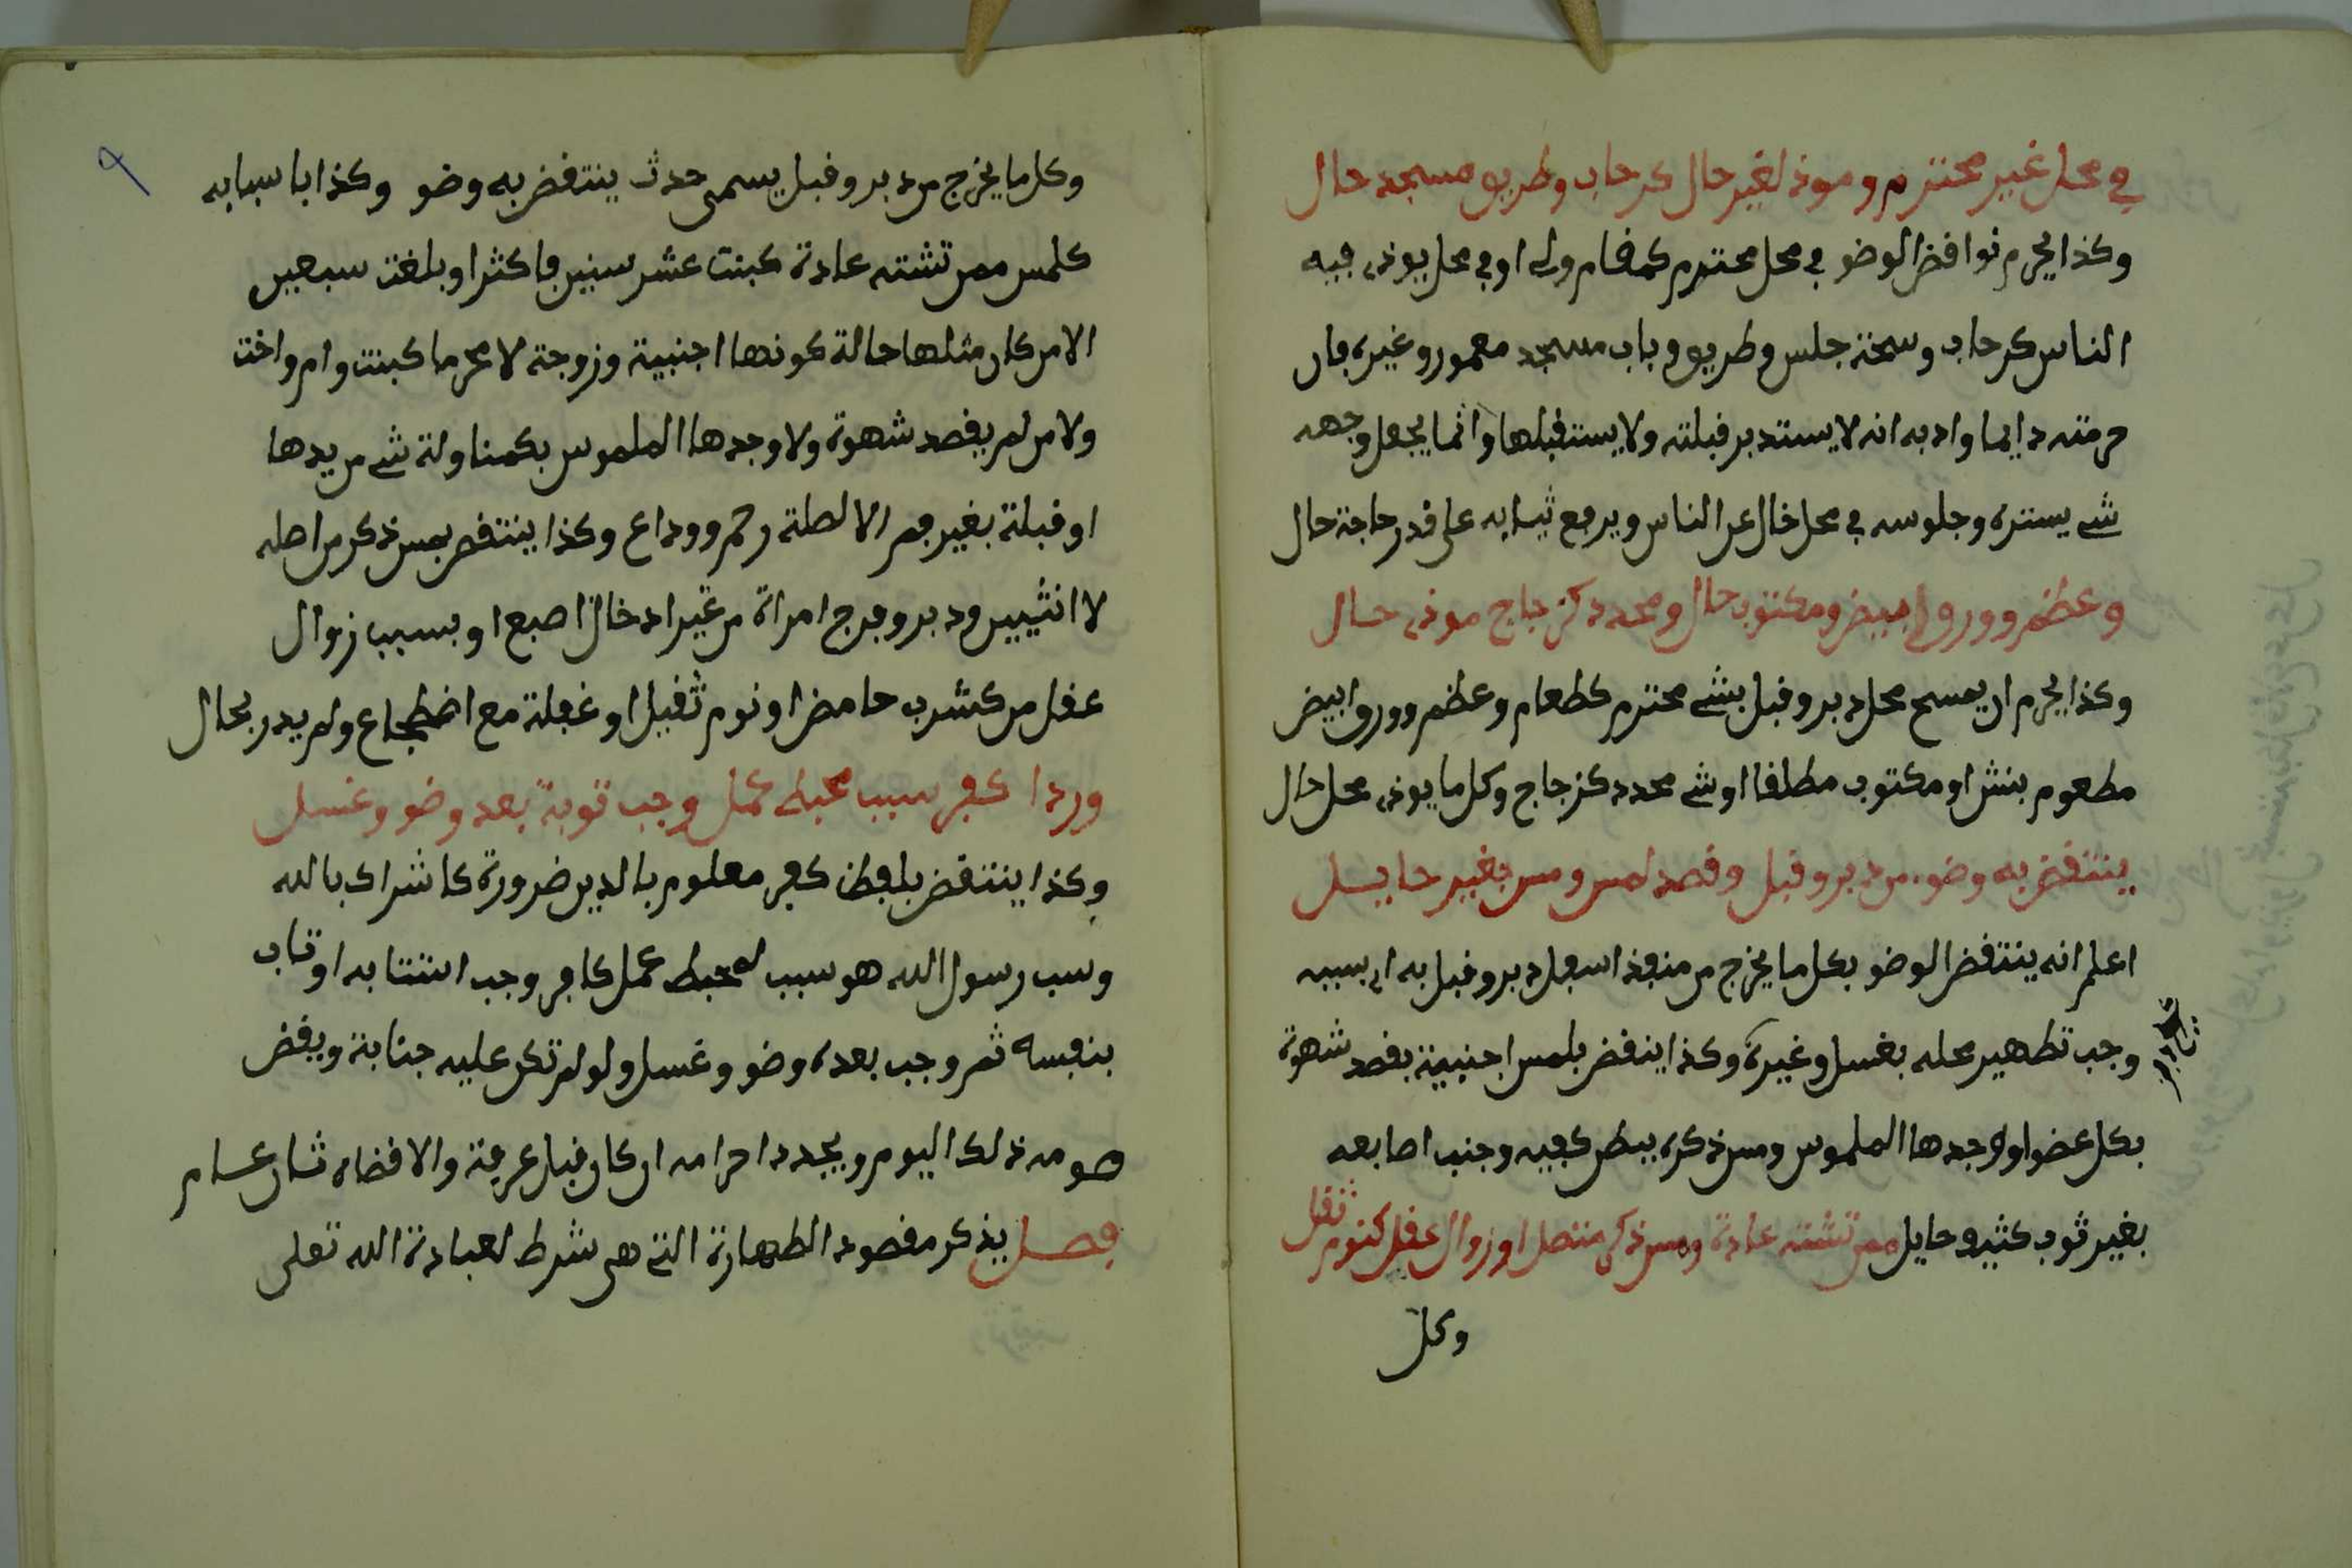 في محل غير محترم وموذ لغير حال كرحاب وطريق مسجد حال
وكذا يحرم نواقض الوضو في محل محترم كمقام ولي او في محل يوذي فيه
الناس كرحاب وسمخة جلس وطريق وباب مسجد معمور وغيره فان
حرمته دايما وادبه انه لا يستدبر قبلته ولا يستقبلها وانما يجعل وجهه
شي يستره وجلوسه في محل خال عن الناس ويرفع ثيابه على قدر حاجة حال
وعظم وورق ابيض ومكتوب حال ومحدد كزجاج موذي حال
وكذا يحرم ان يمسح محل دبر وقبل بشي محترم كطعام وعظم وورق ابيض
مطعوم بنش او مكتوب مطلقا او شي محدد كزجاج وكل ما يوذي محل حال
ينتقض به وضو من دبر وقبل وقصد لمس ومس بغير حايل
اعلم انه ينتقض الوضو بكل ما يخرج من منفذ اسفل دبر وقبل به اي بسببه
وجب تطهير محله بغسل وغيره وكذا ينقض بلمس اجنبية بقصد شهوة
بكل عضو او وجدها الملموس ومس ذكره ببطن كفيه وجنب اصابعه
بغير ثوب كثير وحايل ممن تشته عادة ومس ذكر متصل او زوال عقل كنوم ثقل
وكل
٩
وكل ما يخرج من دبر وقبل يسمى حدث ينتقض به وضو وكذا باسبابه
كلمس ممن تشته عادة كبنت عشر سنين فاكثر او بلغت سبعين
الا من كان مثلها حالة كونها اجنبية وزوجة لا محرما كبنت وام واخت
ولا من لم يقصد شهوة ولا وجدها الملموس بكمناولة شي من يدها
او قبلة بغير فم الا لطلة رحم ووداع وكذا ينتقض بمس ذكر من اصله
لا انثيين ودبر وفرج امراة من غير ادخال اصبع او بسبب زوال
عقل من كشرب حامض او نوم ثقيل او غفلة مع اضطجاع ولم يدر بحال
وردا كفر سبب محبط عمل وجب توبة بعد وضو وغسل
وكذا ينتقض بلفظ كفر معلوم بالدين ضرورة كاشراك بالله
وسب رسول الله هو سبب لمحبط عمل كافر وجب استتابه او تاب
بنفسه ثم وجب بعده وضو وغسل ولو لم تكن عليه جنابة ويقض
صومه ذلك اليوم ويجدد احرامه ان كان قبل عرفة والا قضاه ثان عام
فصل يذكر مقصود الطهارة التي هي شرط لعبادة الله تعلى